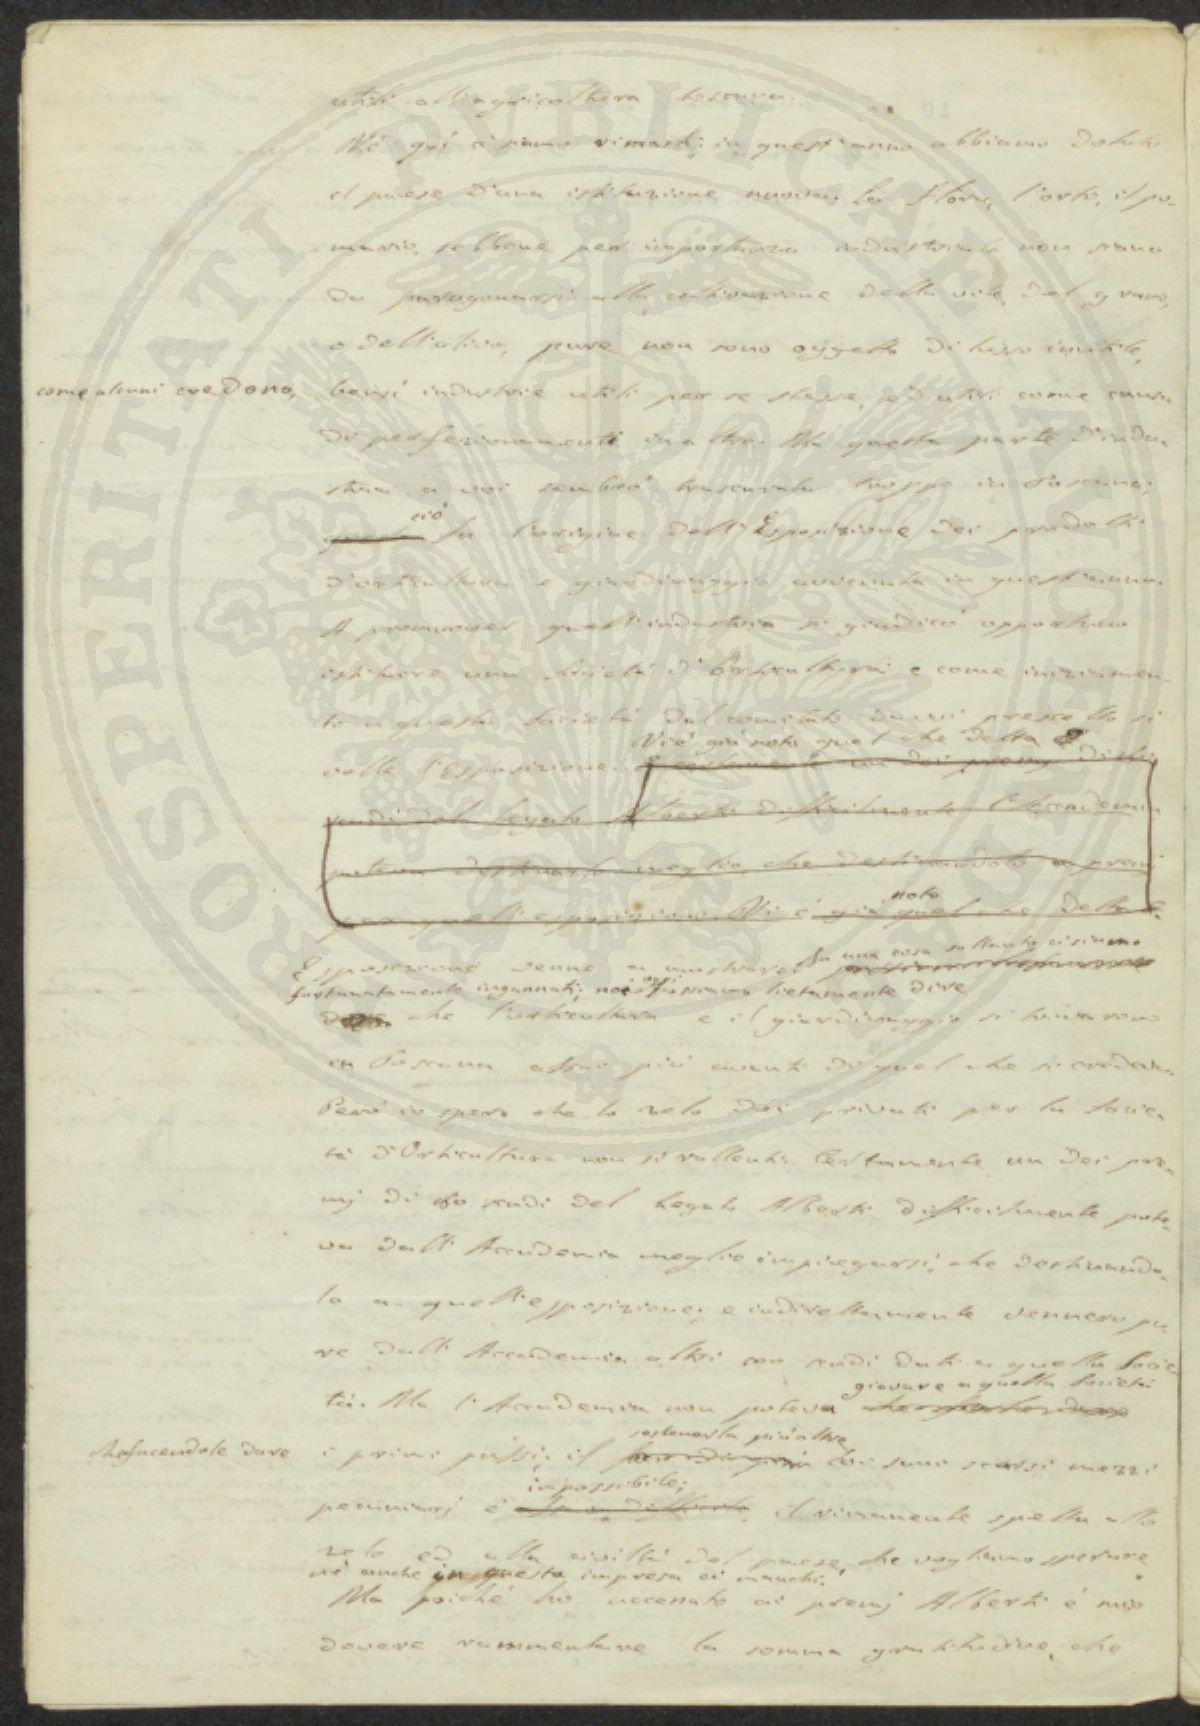 utili all'agricoltura toscana.
Né qui ci siamo rimasti; in quest'anno abbiamo dotato
il paese d'una istituzione nuova. La flora, l'orto, il po-
mario, sebbene per importanza industriale non siano
da paragonarsi alla coltivazione della vite, del grano,
o dell'olivo, pure non sono oggetto di lusso inutile,
come alcuni credono,
bensì industrie utili per se stesse, ed utili come causa
di perfezionamenti in altre. Ma questa parte d'indu-
stria a voi sembrò trascurata troppo in Toscana;
ciò
fu l'origine dell'Esposizione dei prodotti
d'orticultura e giardinaggio avvenuta in quest'anno.
A promuover quest'industria si giudicò opportuno
istituire una Società d'Orticultura; e come inizziamen-
to a questa Società dal comitato da voi prescelto si
Vi è già noto quel che della
volle l'Esposizione. E certamente un dei premj di 80
scudi del legato Alberti difficilmente l'Accademia
poteva destinarlo meglio, che destinandolo a premj
noto
per quell'esposizione. Vi è già quel che della
Fu una cosa soltanto ci siamo
Esposizione venne a mostrarci
fortunatamente ingannati; noi oggi possiamo lietamente dire
che l'orticultura e il giardinaggio si trovarono
in Toscana assai più avanti di quel che si credeva.
Però io spero che lo zelo dei privati per la Socie-
tà d'Orticultura non si rallenti. Certamente un dei pre-
mj di 80 scudi del Legato Alberti difficilmente pote-
va dall'Accademia meglio impiegarsi, che destinando-
lo a quell'esposizione; e indirettamente vennero pu
re dall'Accademia altri 100 scudi dati a quella Socie-
giovare a quella Società
tà. Ma l'Accademia non poteva
che facendole dare
sostenerla più oltre
i primi passi; il coi suoi scarsi mezzi
impossibile;
pecuniarj è il rimanente spetta allo
zelo ed alla civiltà del paese, che vogliamo sperare
né anche in questa impresa ci manchi.
Ma poiché ho accenato ai premj Alberti è mio
dovere rammentare la somma gratitudine, che